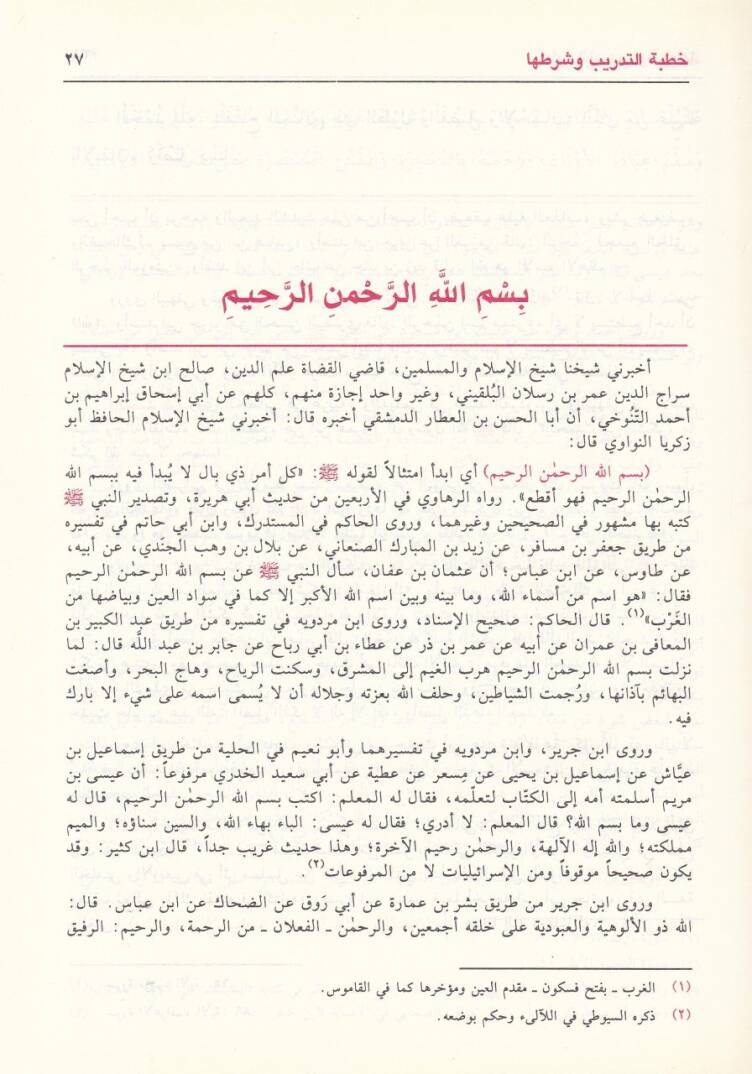 خطبة التدريب وشرطها ٢٧
بِسْمِ اللَّهِ الرَّحْمنِ الرَّحِيمِ
أخبرني شيخنا شيخ الإسلام والمسلمين، قاضي القضاة علم الدين، صالح ابن شيخ الإسلام
سراج الدين عمر بن رسلان البُلقيني، وغير واحد إجازة منهم، كلهم عن أبي إسحاق إبراهيم بن
أحمد التَّنُوخي، أن أبا الحسن بن العطار الدمشقي أخبره قال: أخبرني شيخ الإسلام الحافظ أبو
زكريا النواوي قال:
(بسم الله الرحمٰن الرحيم) أي ابدأ امتثالاً لقوله ﷺ: «كل أمر ذي بال لا يُبدأ فيه ببسم الله
الرحمٰن الرحيم فهو أقطع». رواه الرهاوي في الأربعين من حديث أبي هريرة، وتصدير النبي ﷺ
كتبه بها مشهور في الصحيحين وغيرهما، وروى الحاكم في المستدرك، وابن أبي حاتم في تفسيره
من طريق جعفر بن مسافر، عن زيد بن المبارك الصنعاني، عن بلال بن وهب الجنَدي، عن أبيه،
عن طاوس، عن ابن عباس؛ أن عثمان بن عفان، سأل النبي ﷺ عن بسم الله الرحمٰن الرحيم
فقال: «هو اسم من أسماء الله، وما بينه وبين اسم الله الأكبر إلا كما في سواد العين وبياضها من
الغَرْب»(١). قال الحاكم: صحيح الإسناد، وروى ابن مردويه في تفسيره من طريق عبد الكبير بن
المعافى بن عمران عن أبيه عن عمر بن ذر عن عطاء بن أبي رباح عن جابر بن عبد اللَّه قال: لما
نزلت بسم الله الرحمٰن الرحيم هرب الغيم إلى المشرق، وسكنت الرياح، وهاج البحر، وأصغت
البهائم بآذانها، ورُجمت الشياطين، وحلف الله بعزته وجلاله أن لا يُسمى اسمه على شيء إلا بارك
فيه.
وروى ابن جرير، وابن مردويه في تفسيرهما وأبو نعيم في الحلية من طريق إسماعيل بن
عيَّاش عن إسماعيل بن يحيى عن مِسعر عن عطية عن أبي سعيد الخدري مرفوعاً: أن عيسى بن
مريم أسلمته أمه إلى الكتَّاب لتعلّمه، فقال له المعلم: اكتب بسم الله الرحمٰن الرحيم، قال له
عيسى وما بسم الله؟ قال المعلم: لا أدري؛ فقال له عيسى: الباء بهاء الله، والسين سناؤه؛ والميم
مملكته؛ والله إله الآلهة، والرحمٰن رحيم الآخرة؛ وهذا حديث غريب جداً، قال ابن كثير: وقد
يكون صحيحاً موقوفاً ومن الإسرائيليات لا من المرفوعات(٢).
وروى ابن جرير من طريق بشر بن عمارة عن أبي رَوق عن الضحاك عن ابن عباس. قال:
الله ذو الألوهية والعبودية على خلقه أجمعين، والرحمٰن ـ الفعلان ـ من الرحمة، والرحيم: الرفيق
(١) الغرب ـ بفتح فسكون ـ مقدم العين ومؤخرها كما في القاموس.
(٢) ذكره السيوطي في اللآلىء وحكم بوضعه.